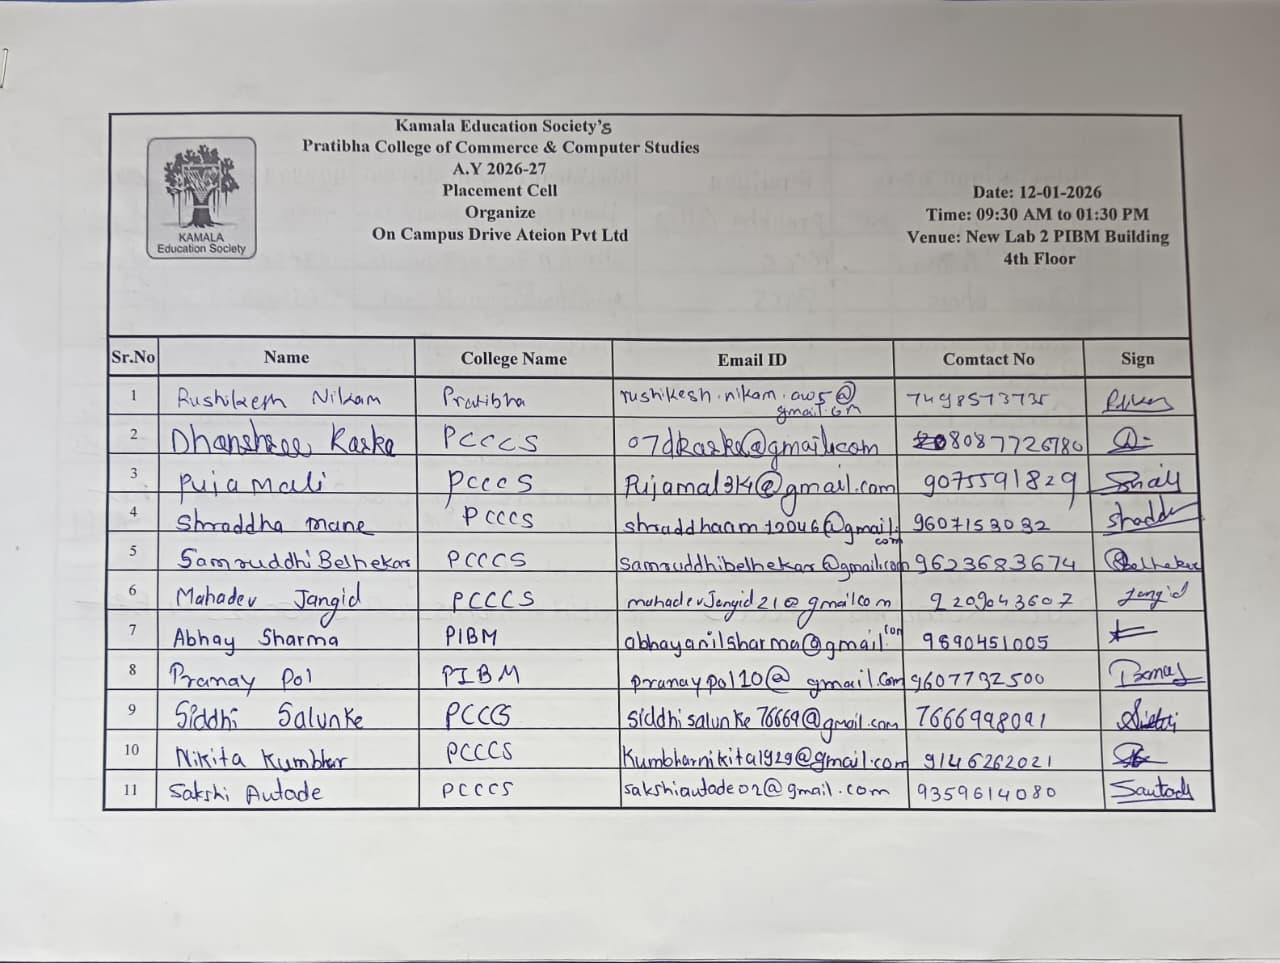 Kamala Education Society's
Pratibha College of Commerce & Computer Studies
A.Y 2026-27
Placement Cell
Organize
On Campus Drive Ateion Pvt Ltd
KAMALA
Education Society
Date: 12-01-2026
Time: 09:30 AM to 01:30 PM
Venue: New Lab 2 PIBM Building
4th Floor
Sr.No Name College Name Email ID Comtact No Sign
1 Rushikesh Nikam Pratibha rushikesh.nikam.aw5@ 7498573735
gmail.com
2 Dhanshree Karke PCCCS 07dkarke@gmail.com 8087726780
3 Puja Mali PCCCS Pujamal314@gmail.com 9075591829
4 Shraddha mane PCCCS shraddhaam12046@gmail. 9607153032
com
5 Samruddhi Belhekar PCCCS Samruddhibelhekar@gmail.com 9623683674 Belhekar
6 Mahadev Jangid PCCCS mahadevJangid21@gmailcom 9209043607 Jangid
7 Abhay Sharma PIBM abhayanilsharma@gmail.com 9890451005
8 Pranay Pol PIBM pranaypol10@gmail.com 9607732500
9 Siddhi Salunke PCCCS Siddhisalunke76669@gmail.com 7666998091
10 Nikita Kumbhar PCCCS Kumbharnikita1929@gmail.com 9146262021
11 Sakshi Autade PCCCS sakshiautade02@gmail.com 9359614080